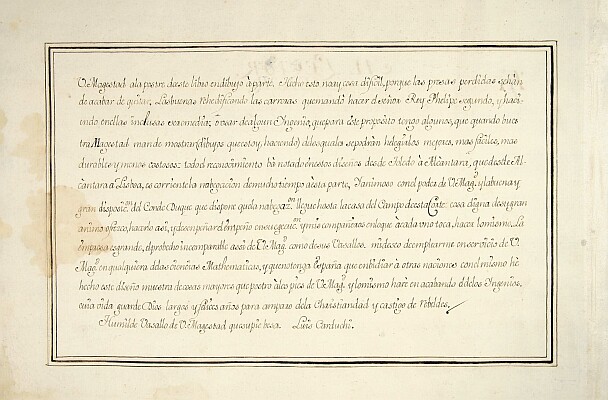 V. Magestad ala postre deeste libro endibujo à parte. Hecho esto no ay cosa dificil, porque las presas perdidas se han
de acabar de quitar, Las buenas rehedificando las carreras que mandò hacer el señor Rey Phelipe segundo, y haci-
endo enellas inclusas se remedia; ò usar de algun Ingenio, que para este proposito tengo algunos, que quando vues
tra Magestad mande mostrar (dibujos que estoy, haciendo) delos quales se podràn helegir los mejores, mas faciles, mas
durables y menos costosos: todo el reconocimiento bà notado en estos diseños desde Toledo à Alcantara, que desde Al-
cantara à Lisboa, es corriente la nabegacion de mucho tiempo à esta parte, Y animoso con el poder de V. Magd. y la buena y
gran disposicion. del Conde Duque que dispone que la nabegazon. llegue hasta la casa del Campo de esta Corte: cosa digna de su gran
animo ofrezco, hacerlo assi, y desempeñar el empeño en su egecucion. y mis compañeros en lo que à cada uno toca, hacer lo mismo. La
empressa es grande, el probecho incomparable assi de V. Magd. como de sus Vasallos. mi deseo de emplearme en servicio de V.
Magd. en qualquiera delas ciencias Mathematicas, y que no tenga España que embidiar à otras naciones con el mismo he
hecho este diseño muestra de cosas mayores que postro alos pies de V. Magd. y lo mismo harè en acabando el delos Ingenios,
cuia vida guarde Dios largos y felices años para amparo dela Christiandad y castigo de rebeldes.
Humilde Vasallo de V. Magestad que su pie besa. Luis Carduchi.